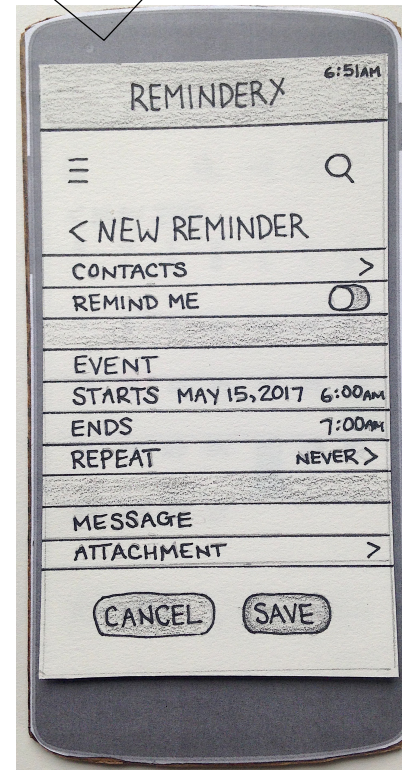 6:51AM
REMINDERX
< NEW REMINDER
CONTACTS >
REMIND ME
EVENT
STARTS MAY 15, 2017 6:00AM
ENDS 7:00AM
REPEAT NEVER >
MESSAGE
ATTACHMENT >
CANCEL SAVE